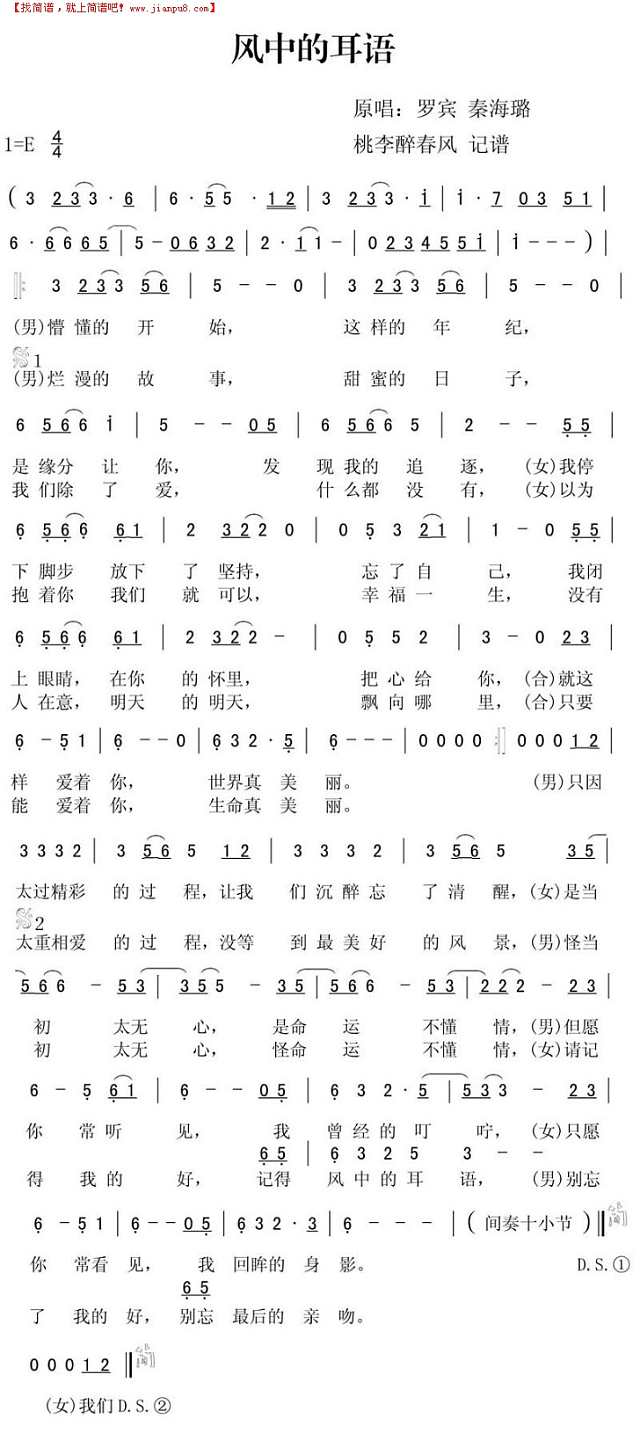 【找简谱，就上简谱吧! www.jianpu8.com】
风中的耳语
原唱：罗宾 秦海璐
1=E 4/4 桃李醉春风 记谱
( 3 2 3 3 3 · 6 | 6 · 5 5 · 1 2 | 3 2 3 3 3 · i | i · 7 0 3 5 1 |
6 · 6 6 6 5 | 5 - 0 6 3 2 | 2 · 1 1 - | 0 2 3 4 5 5 i | i - - - ) |
3 2 3 3 5 6 | 5 - - 0 | 3 2 3 3 5 6 | 5 - - 0 |
(男)懵懂的 开 始， 这样的 年 纪，
1
(男)烂漫的 故 事， 甜蜜的 日 子，
6 5 6 6 i | 5 - - 0 5 | 6 5 6 6 5 | 2 - - 5 5 |
是缘分 让 你， 发 现我的 追 逐， (女)我停
我们除 了 爱， 什么都 没 有， (女)以为
6 5 6 6 6 1 | 2 3 2 2 0 | 0 5 3 2 1 | 1 - 0 5 5 |
下脚步 放下 了 坚持， 忘了自 己， 我闭
抱着你 我们 就 可以， 幸福一 生， 没有
6 5 6 6 6 1 | 2 3 2 2 - | 0 5 5 2 | 3 - 0 2 3 |
上眼睛， 在你 的 怀里， 把心给 你， (合)就这
人在意， 明天 的 明天， 飘向哪 里， (合)只要
6 - 5 1 | 6 - - 0 | 6 3 2 · 5 | 6 - - - | 0 0 0 0 :| 0 0 0 1 2 |
样 爱着 你， 世界真 美 丽。 (男)只因
能 爱着 你， 生命真 美 丽。
3 3 3 2 | 3 5 6 5 1 2 | 3 3 3 2 | 3 5 6 5 3 5 |
太过精彩 的过 程，让我 们沉醉忘 了清 醒，(女)是当
2
太重相爱 的过 程，没等 到最美好 的风 景，(男)怪当
5 6 6 - 5 3 | 3 5 5 - 3 5 | 5 6 6 - 5 3 | 2 2 2 - 2 3 |
初 太无 心， 是命 运 不懂 情，(男)但愿
初 太无 心， 怪命 运 不懂 情，(女)请记
6 - 5 6 1 | 6 - - 0 5 | 6 3 2 · 5 | 5 3 3 - 2 3 |
你 常听 见， 我 曾经的叮 咛， (女)只愿
6 5 | 6 3 2 5 3 - -
得 我的 好， 记得 风中的耳 语， (男)别忘
6 - 5 1 | 6 - - 0 5 | 6 3 2 · 3 | 6 - - - | ( 间奏十小节 )
你 常看 见， 我 回眸的身 影。 D.S.①
6 5
了 我的 好， 别忘 最后的亲 吻。
0 0 0 1 2
(女)我们D.S.②